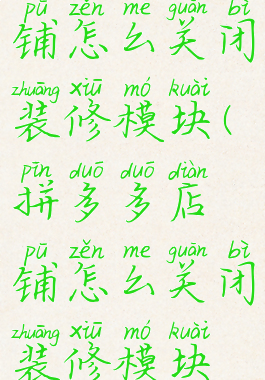 pū zěn me guān bì
铺怎么关闭
zhuāng xiū mó kuài
装修模块(
pīn duō duō diàn
拼多多店
pū zěn me guān bì
铺怎么关闭
zhuāng xiū mó kuài
装修模块